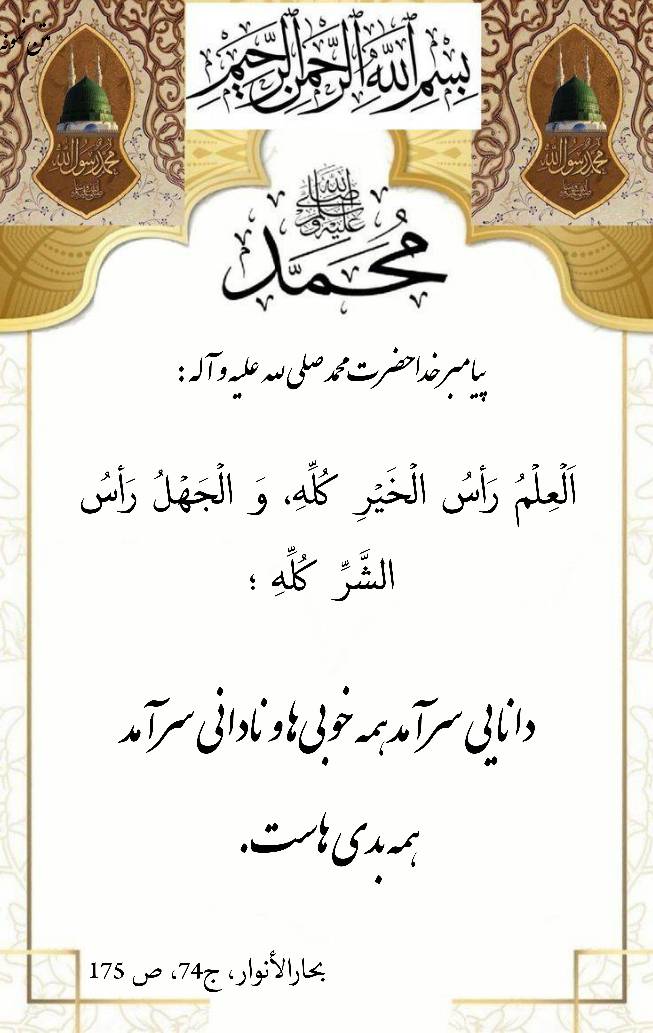 بِسْمِ ٱللَّٰهِ ٱلرَّحْمَٰنِ ٱلرَّحِيمِ
محمد رسول الله
محمد رسول الله
صلى الله عليه وسلم
مُحَمَّد
پیامبر خدا حضرت محمد صلی الله علیه و آله :
اَلْعِلْمُ رَأسُ الْخَيْرِ كُلِّهِ، وَ الْجَهْلُ رَأسُ
الشَّرِّ كُلِّهِ ؛
دانایی سرآمد همه خوبی ها و نادانی سرآمد
همه بدی هاست.
بحارالأنوار، ج74، ص 175